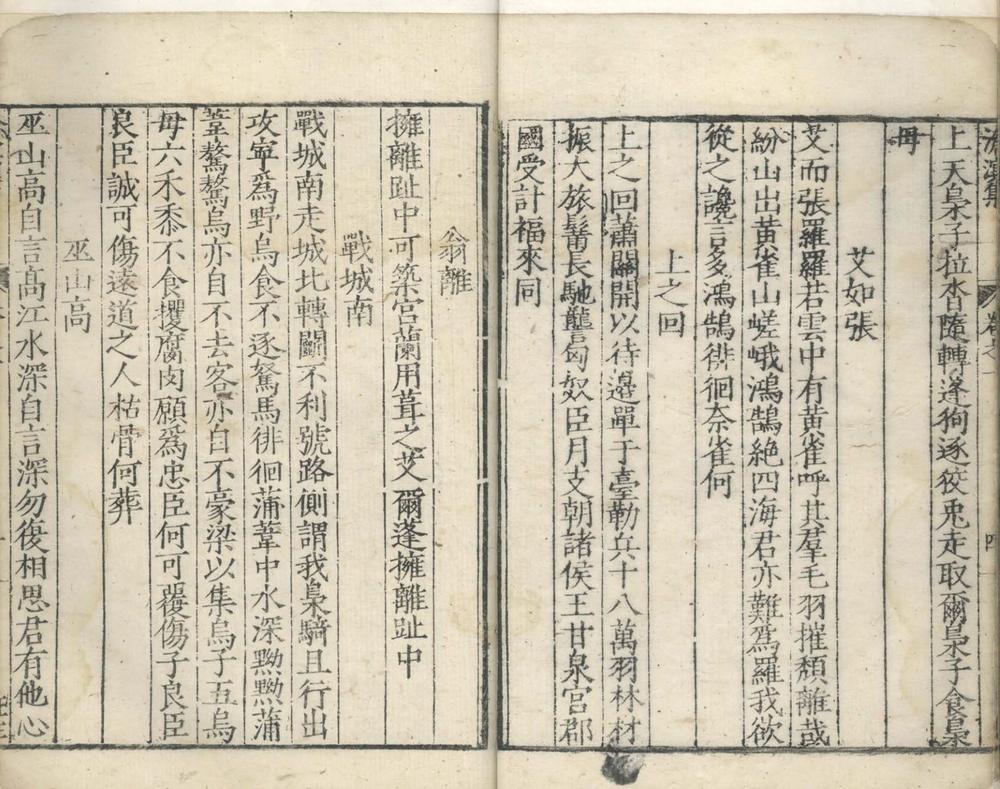 滄溟集 卷之一 四
上天梟子拉沓隨轉蓬狗逐狡兎走取爾梟子食梟
母
艾如張
艾而張羅羅若雲中有黃雀呼其羣毛羽摧頹離哉
紛山出黃雀山嵯峨鴻鵠絶四海君亦難爲羅我欲
從之讒言多鴻鵠徘徊奈雀何
上之回
上之回蕭關開以待邉單于臺勒兵十八萬羽林材
振大旅髾長馳龍匈奴臣月支朝諸侯王甘泉宮郡
國受計福來同
翁離
擁離趾中可築宮蘭用葺之艾爾蓬擁離趾中
戰城南
戰城南走城北轉鬭不利號路側謂我梟騎且行出
攻寧爲野烏食不逐駑馬徘徊蒲葦中水深黝黝蒲
葦鶩鶩烏亦自不去客亦自不豪梁以集烏子五烏
母六禾黍不食攫腐肉願爲忠臣何可覆傷子良臣
良臣誠可傷遠道之人枯骨何葬
巫山高
巫山高自言高江水深自言深勿復相思君有他心